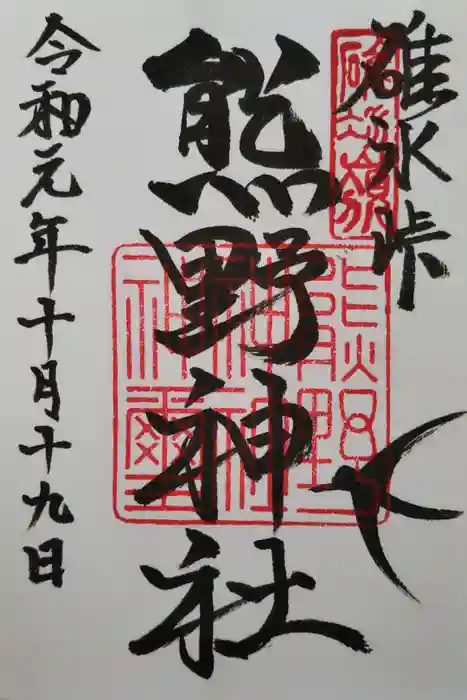 碓氷峠
碓氷嶺
熊野神社
熊野
神社
神璽
令和元年十月十九日